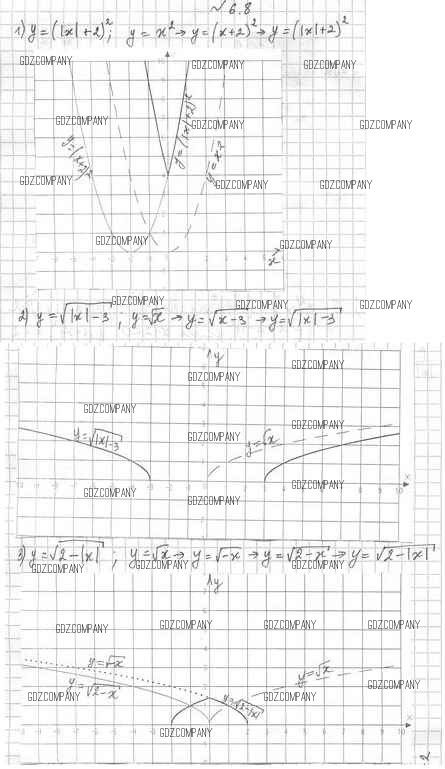 № 6.8
1) y = (|x|+2)²; y = x² → y = (x+2)² → y = (|x|+2)²
GDZCOMPANY GDZCOMPANY GDZCOMPANY
GDZCOMPANY GDZCOMPANY GDZCOMPANY
y=(x+2)² y=(|x|+2)² y=x²
GDZCOMPANY GDZCOMPANY GDZCOMPANY
GDZCOMPANY GDZCOMPANY
x
GDZCOMPANY GDZCOMPANY GDZCOMPANY
2) y = √|x|-3; y=√x → y=√x-3 → y=√|x|-3
y
GDZCOMPANY GDZCOMPANY
GDZCOMPANY GDZCOMPANY
y=√|x|-3 GDZCOMPANY y=√x
GDZCOMPANY GDZCOMPANY GDZCOMPANY
x
10
3) y=√2-|x|; y=√x → y=√-x → y=√2-x → y=√2-|x|
GDZCOMPANY GDZCOMPANY GDZCOMPANY GDZCOMPANY
y
GDZCOMPANY GDZCOMPANY GDZCOMPANY GDZCOMPANY
y=√-x y=√x
y=√2-x y=√2-|x|
GDZCOMPANY GDZCOMPANY GDZCOMPANY
x
10
GDZCOMPANY